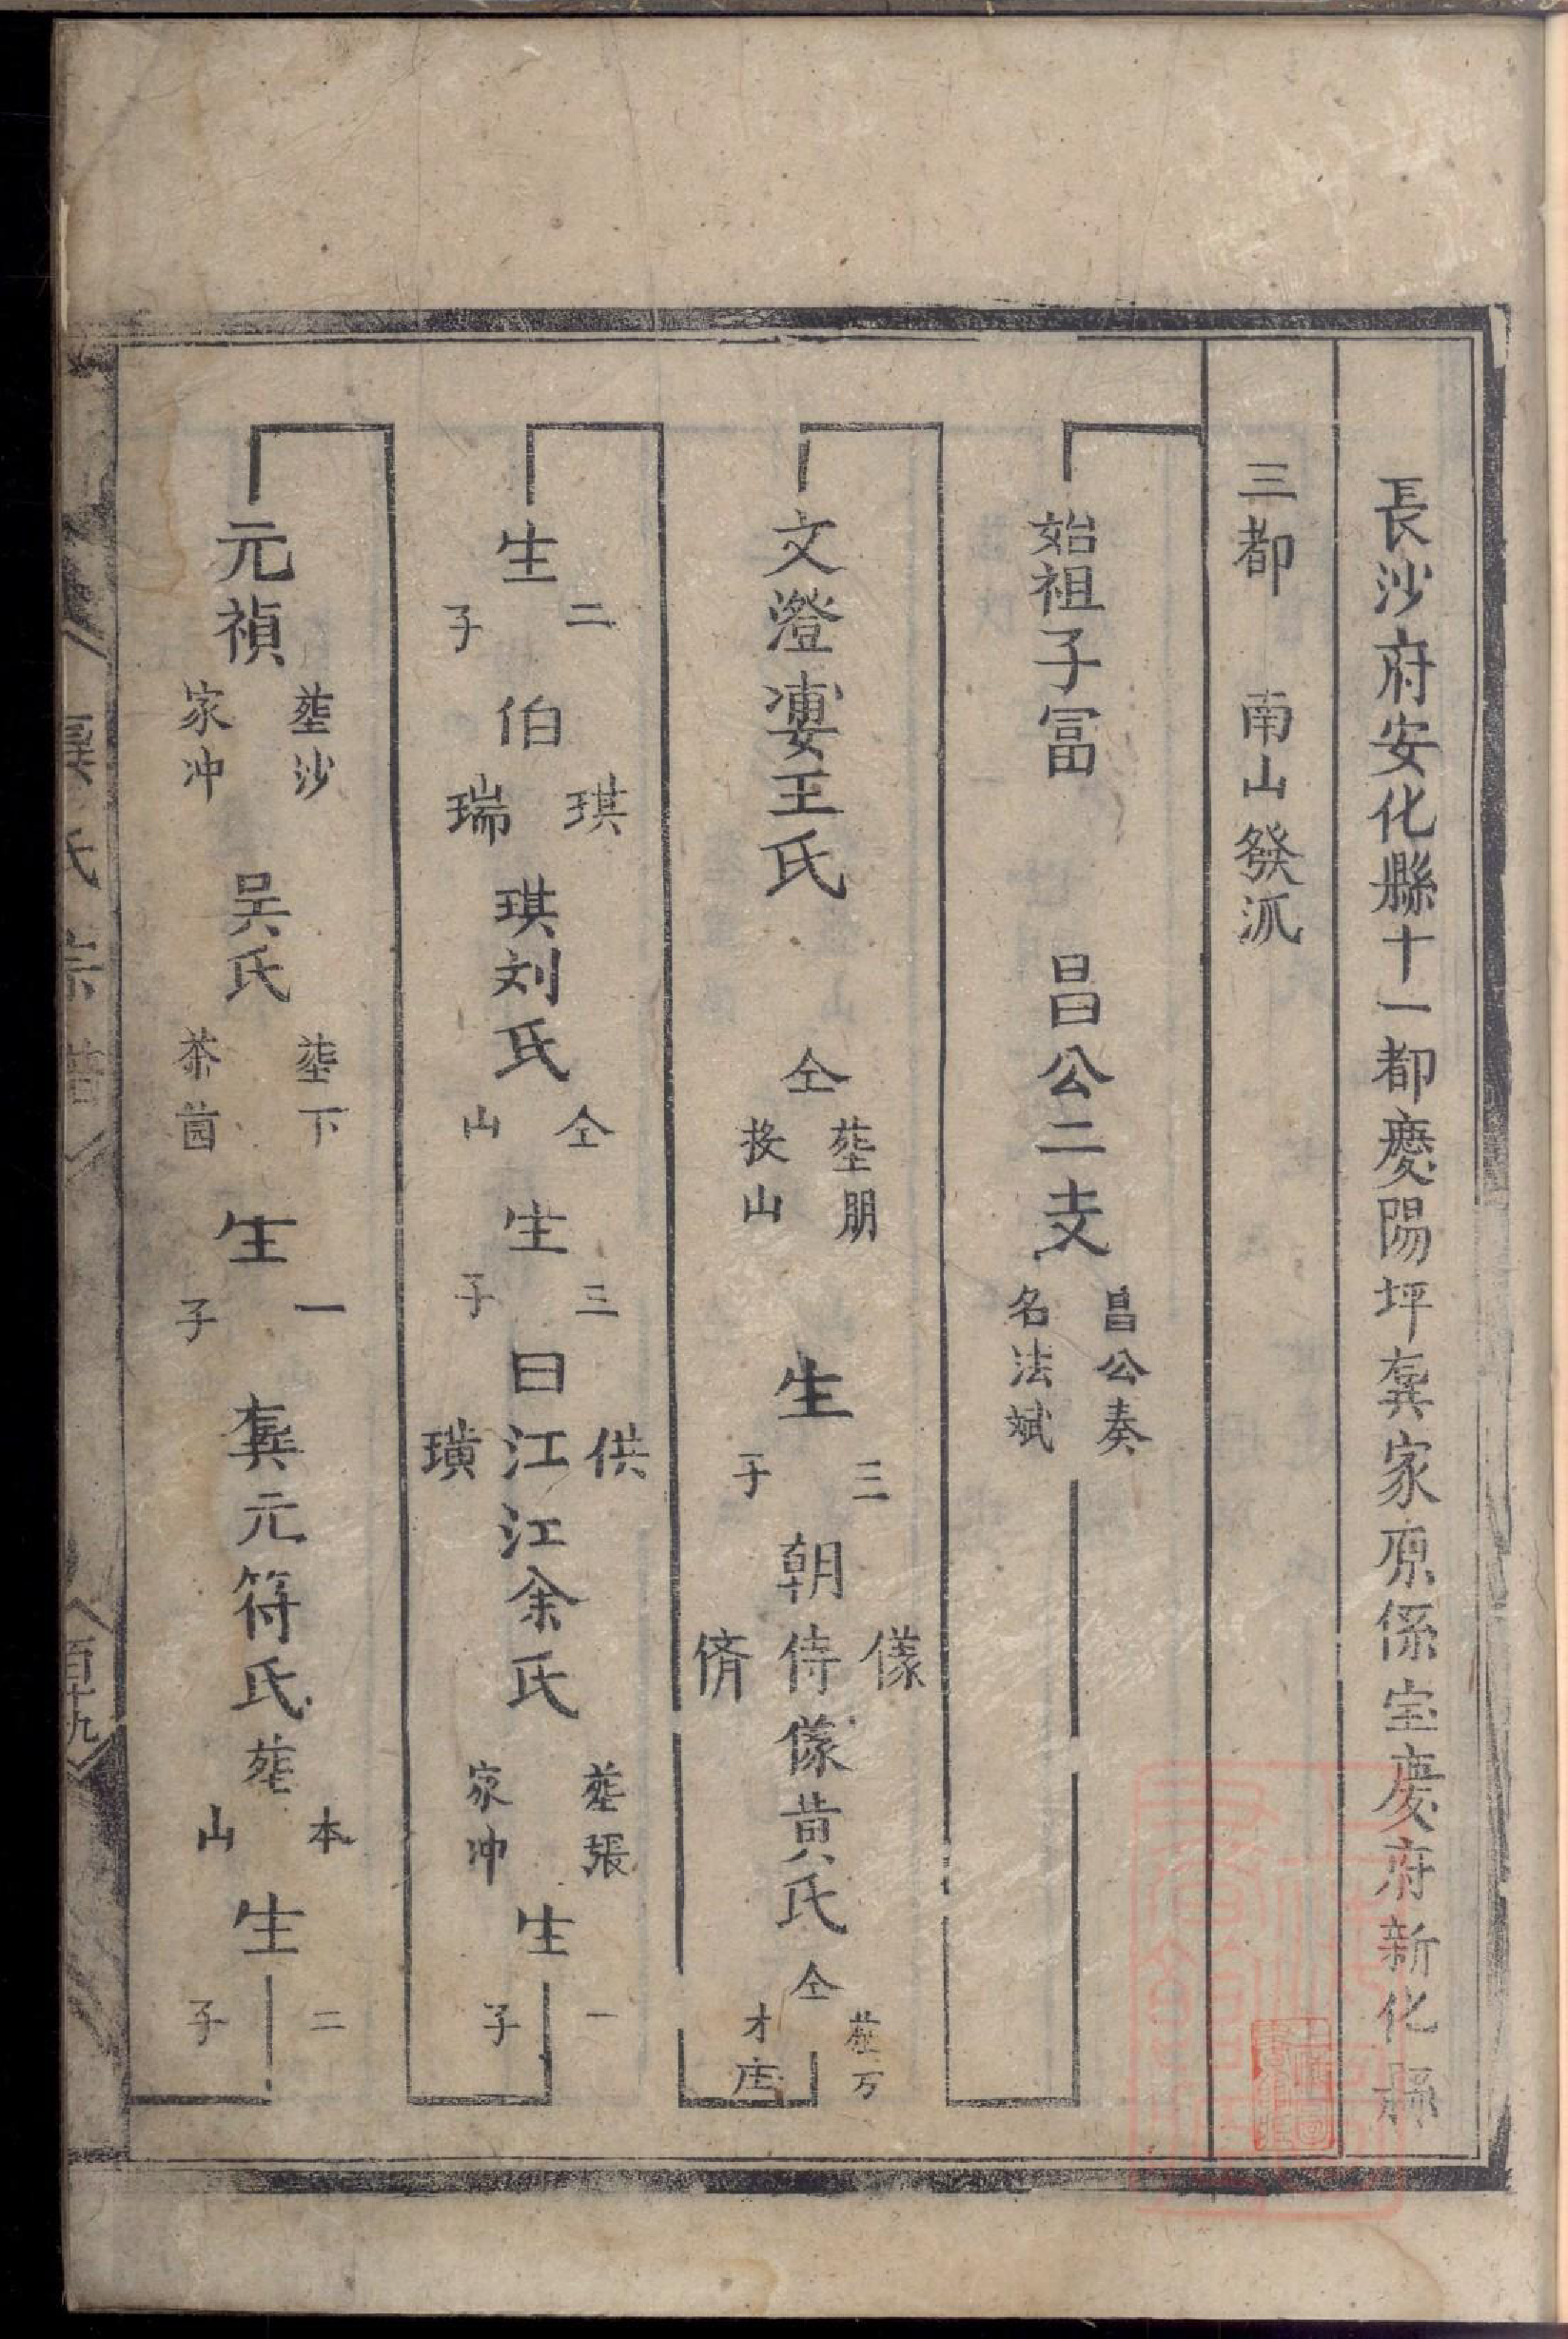 長沙府安化縣十一都慶陽坪龔家原係宝慶府新化縣
三都 南山發派
始祖子冨 昌公二支 昌公奏名法斌
文澄妻王氏 仝 塟朋拔山 生 三子 朝 儀侍儕 儀黄氏 仝 塟万才庄
生 二子 伯 琪瑞 琪刘氏 仝山 生 三子 曰 供江璜 江余氏 塟張家冲 生 一子
元禎 塟沙家冲 吴氏 塟下茶茵 生 一子 龔元符氏 塟本山 生 二子
龔氏宗譜
百九